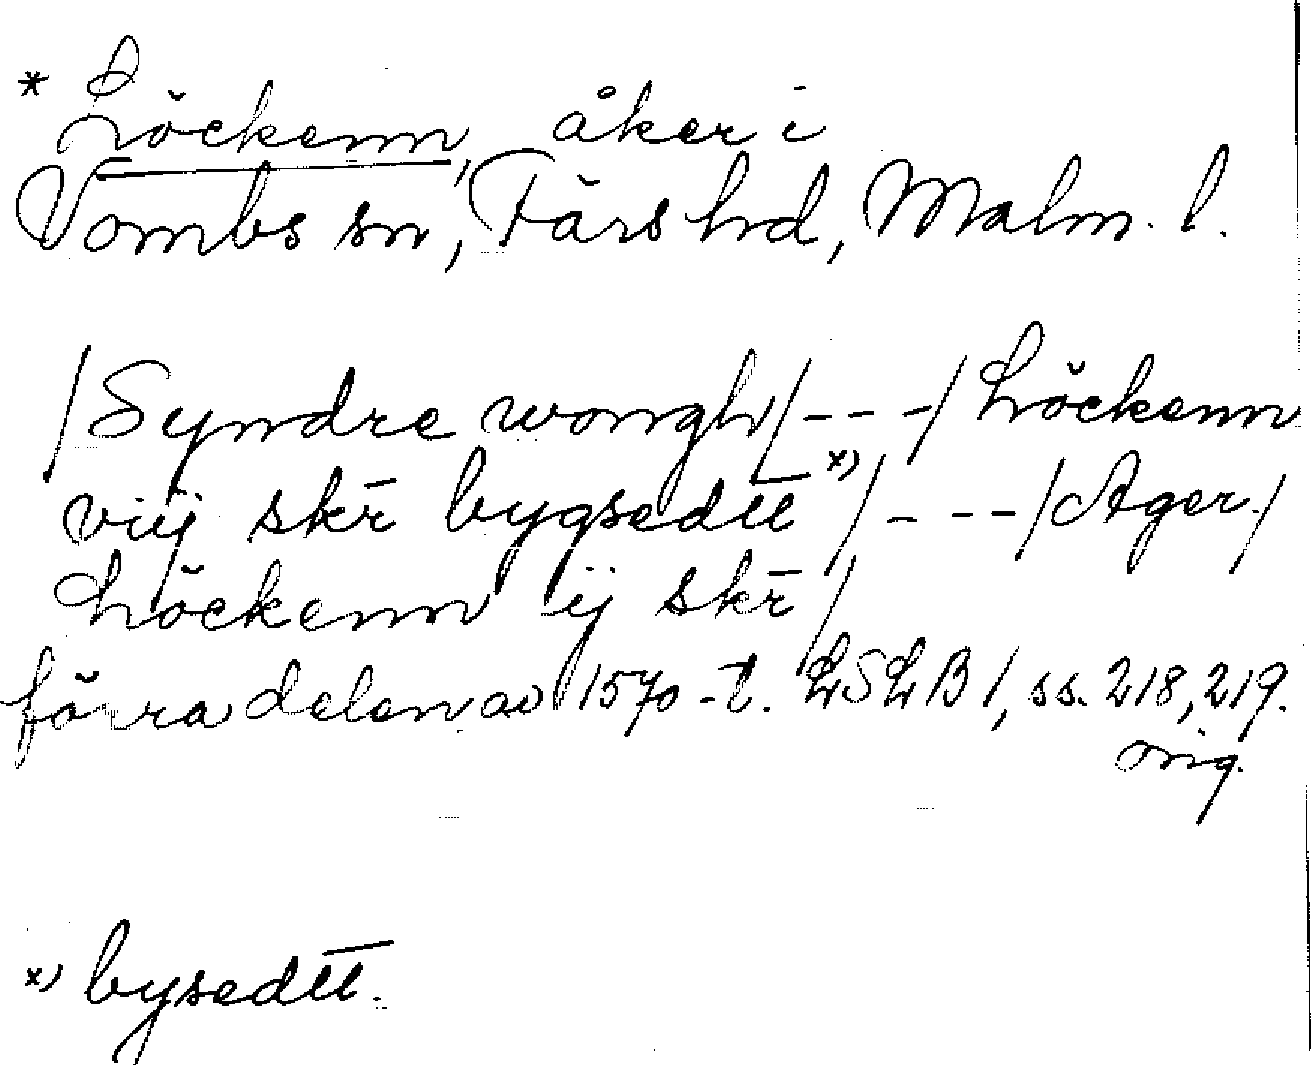 * Löckenn, åker i
Vombs sn, Färs hd, Malm. l.
/Syndre wongh/ - - - / Löckenn
viij skr̄ bygsedt̄t̄ x) / - - - /Ager/
Löckenn ij skr̄ /
förra delen av 1570-t. LSLB 1, ss. 218, 219.
orig.
x) bysedt̄t̄.